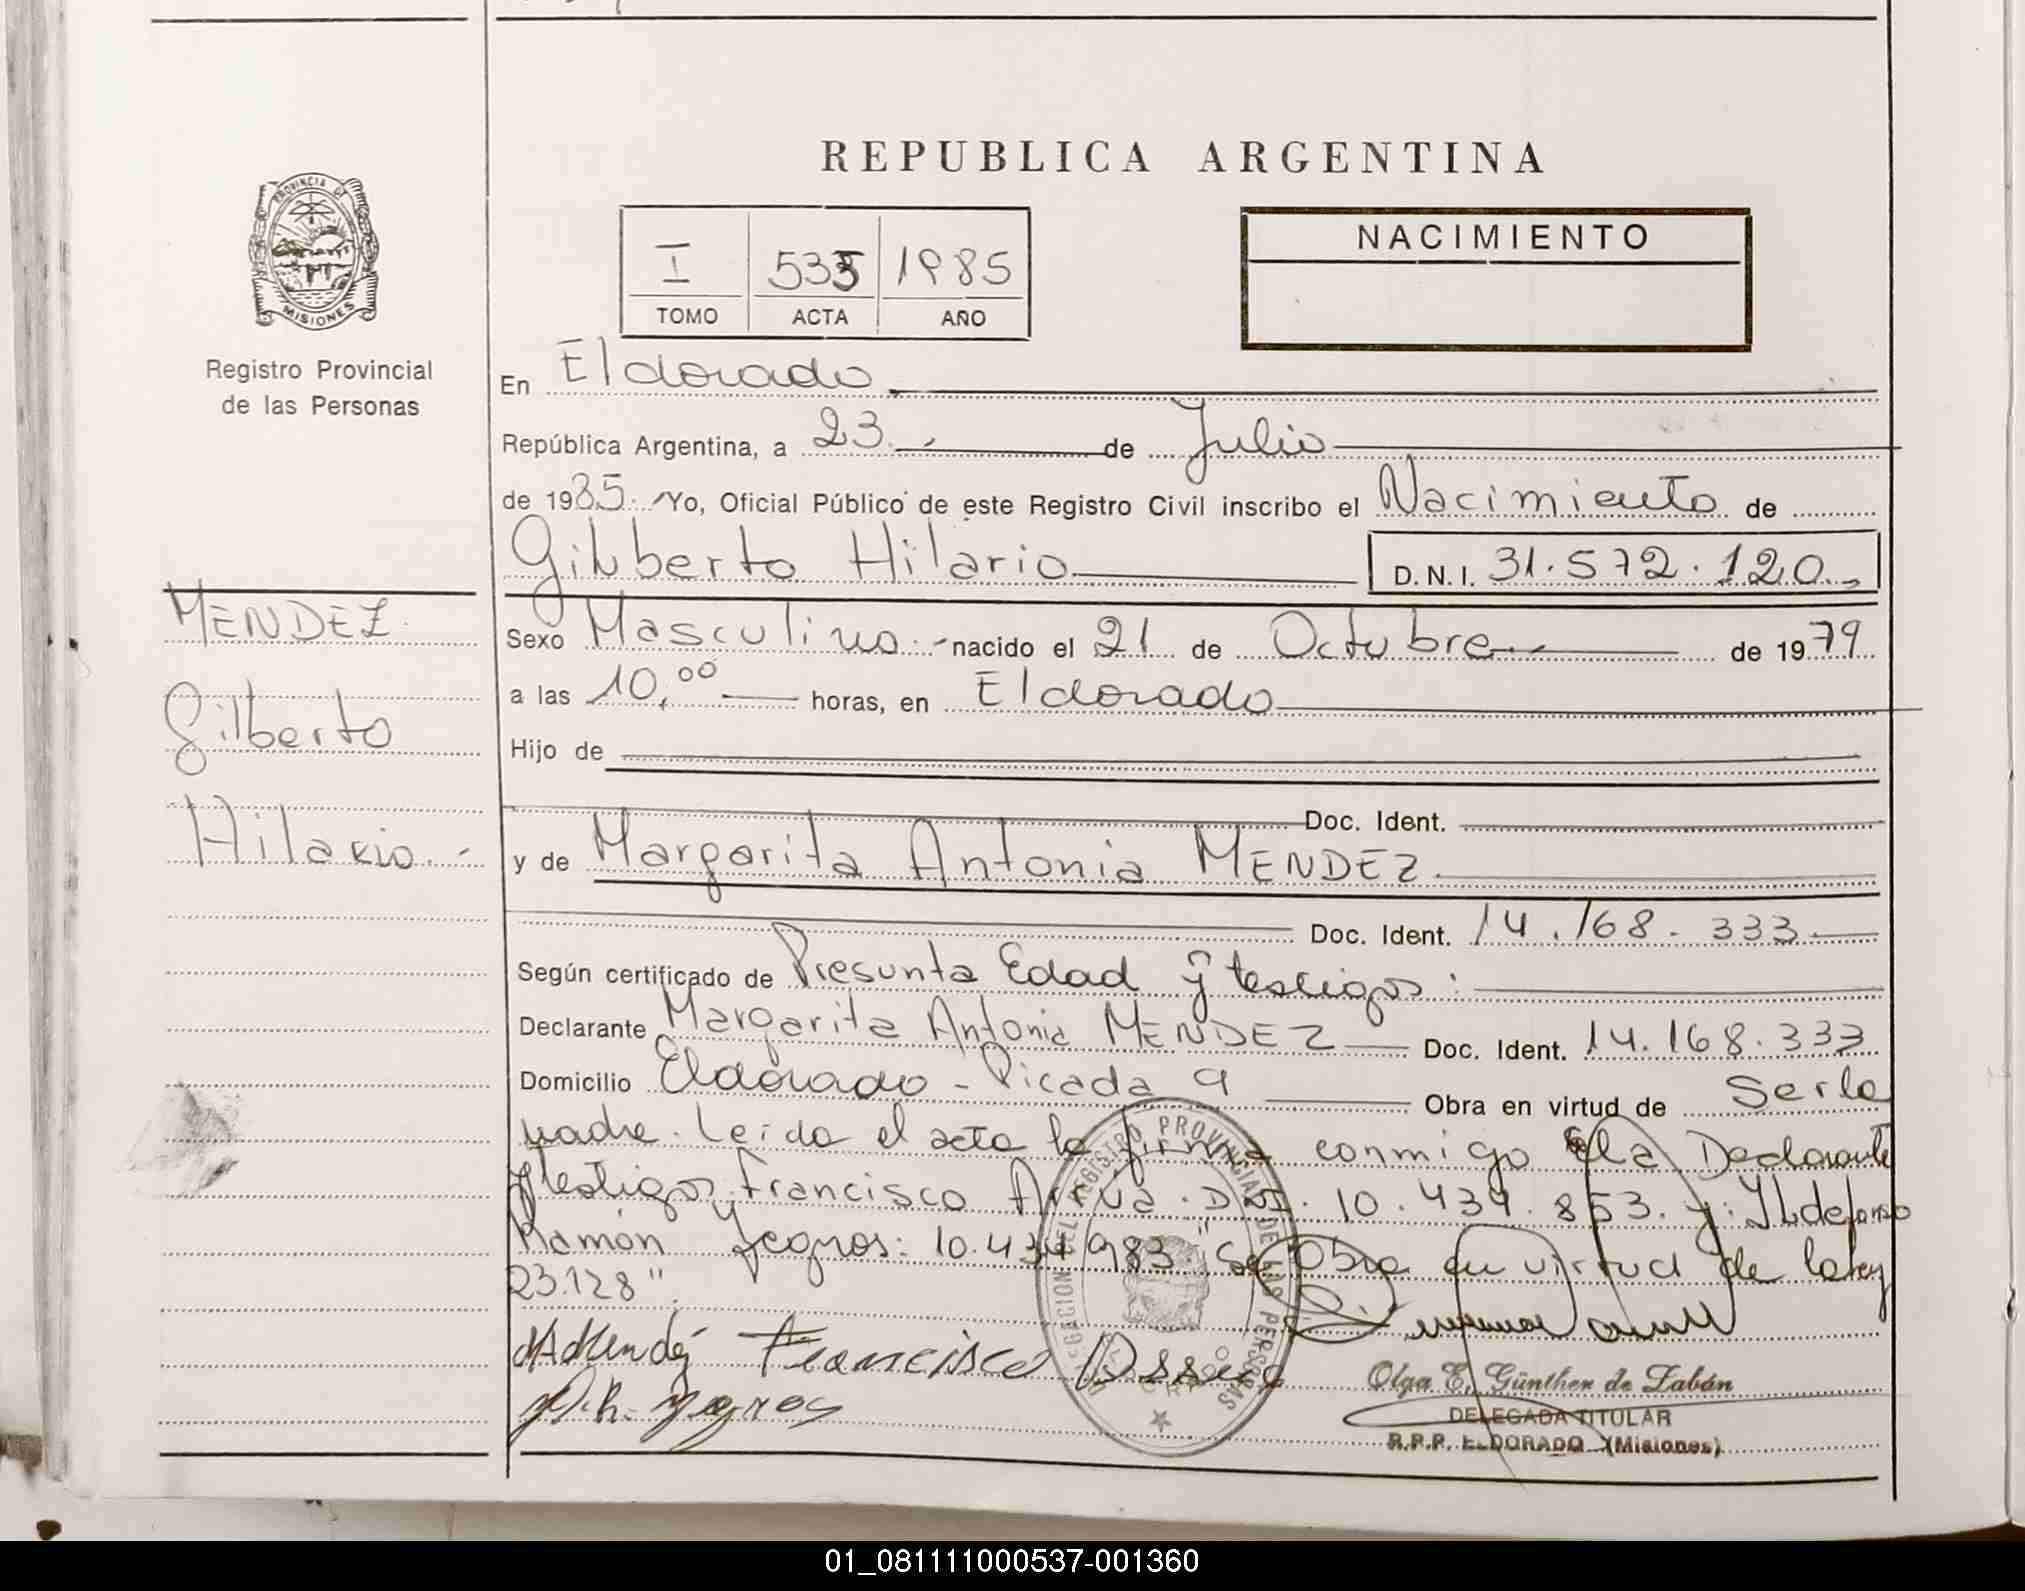 REPUBLICA ARGENTINA
PROVINCIA DE
MISIONES
Registro Provincial
de las Personas
I 535 1985
TOMO ACTA AÑO
NACIMIENTO
En Eldorado
República Argentina, a 23 de Julio
de 1985. Yo, Oficial Público de este Registro Civil inscribo el Nacimiento de
Gilberto Hilario D.N.I. 31.572.120.
MENDEZ
Gilberto
Hilario.-
Sexo Masculino.- nacido el 21 de Octubre de 1979
a las 10,00 horas, en Eldorado
Hijo de
Doc. Ident.
y de Margarita Antonia MENDEZ
Doc. Ident. 14.168.333
Según certificado de Presunta Edad y testigos:
Declarante Margarita Antonia MENDEZ Doc. Ident. 14.168.333
Domicilio Eldorado - Picada 9 Obra en virtud de Ser la
madre. Leida el acta la firma conmigo la Declarante
y testigos: Francisco 10.434.853. y: Ildefonso
Ramón Yegros: 10.434.983. "Se Obra en virtud de la ley
23.128".
MAMendéz Francisco
Yegros
DELEGACION DEL REGISTRO PROVINCIAL DE LAS PERSONAS
ELDORADO
Olga E. Günther de Zabán
DELEGADA TITULAR
R.P.P. ELDORADO (Misiones)
01_081111000537-001360